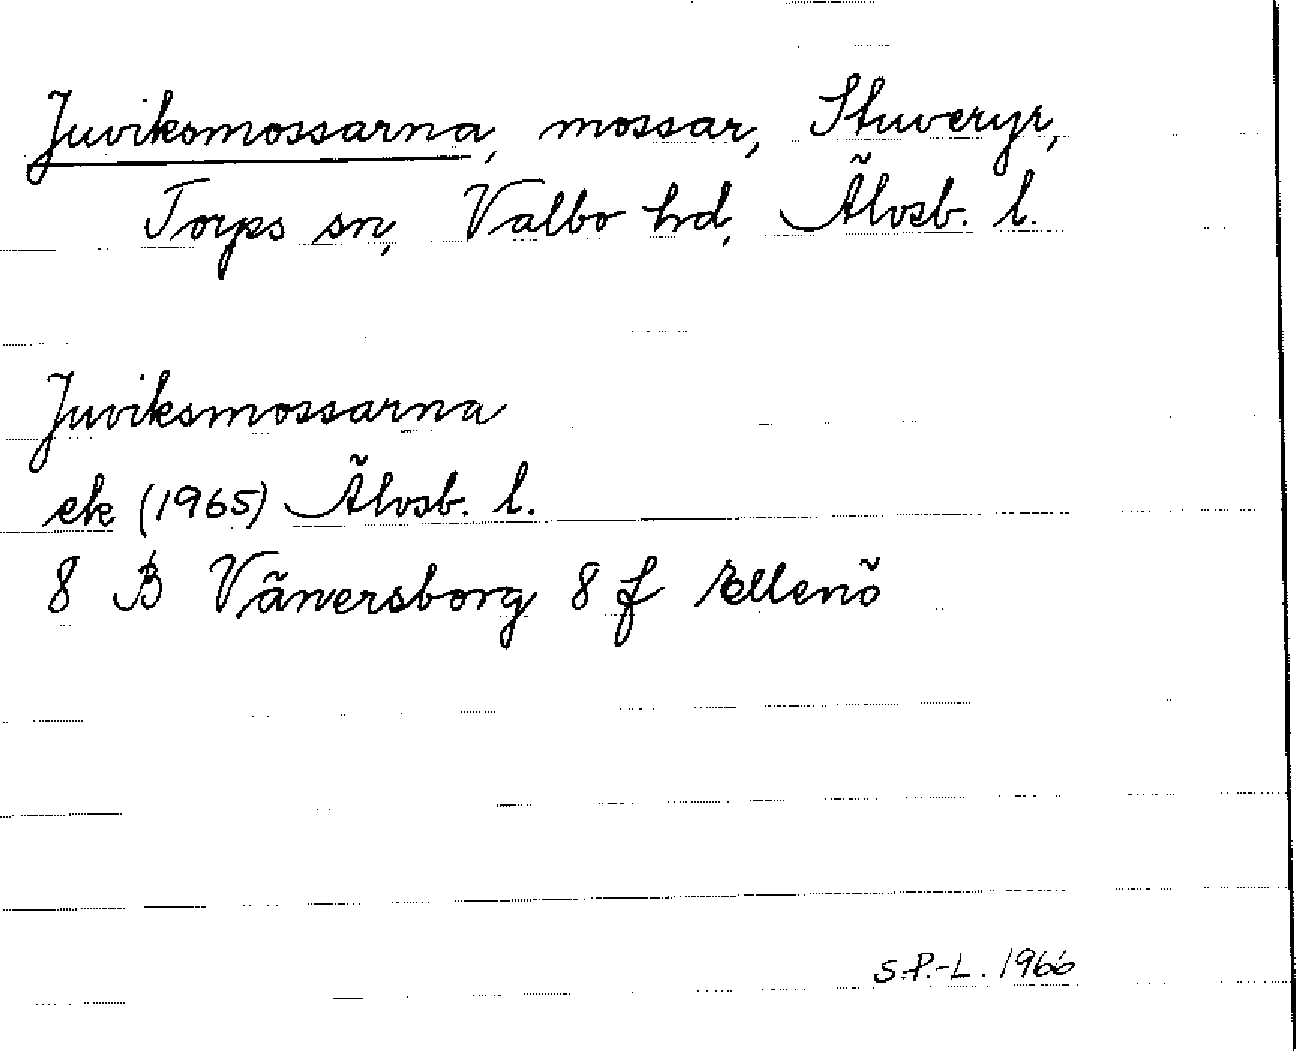 Juviksmossarna, mossar, Stuveryr,
Torps sn, Valbo hd, Älvsb. l.
Juviksmossarna
ek (1965) Älvsb. l.
8 B Vänersborg 8 f Ellenö
S.P.-L. 1966